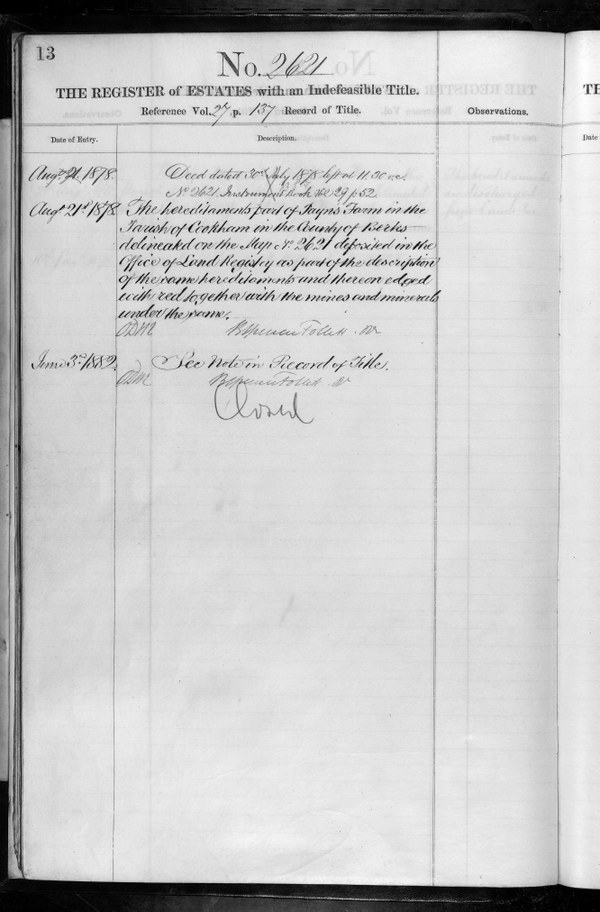 13
No. 2621
THE REGISTER of ESTATES with an Indefeasible Title.
Reference Vol. 27 p. 137 Record of Title.
Observations.
Date of Entry.
Description.
Augt 21. 1878.
Deed dated 30th July 1878 left at 11.30 o.c.
No 2621 Instruments Book Vol 29 p 52
Augt 21st 1878
The hereditaments part of Payns Farm in the
Parish of Cookham in the County of Berks
delineated on the Map No 2621 deposited in the
Office of Land Registry as part of the description
of the same hereditaments and thereon edged
with red together with the mines and minerals
under the same.
Brent Spencer Follett
June 3rd 1882
See Note in Record of Title.
Closed
TH
Date